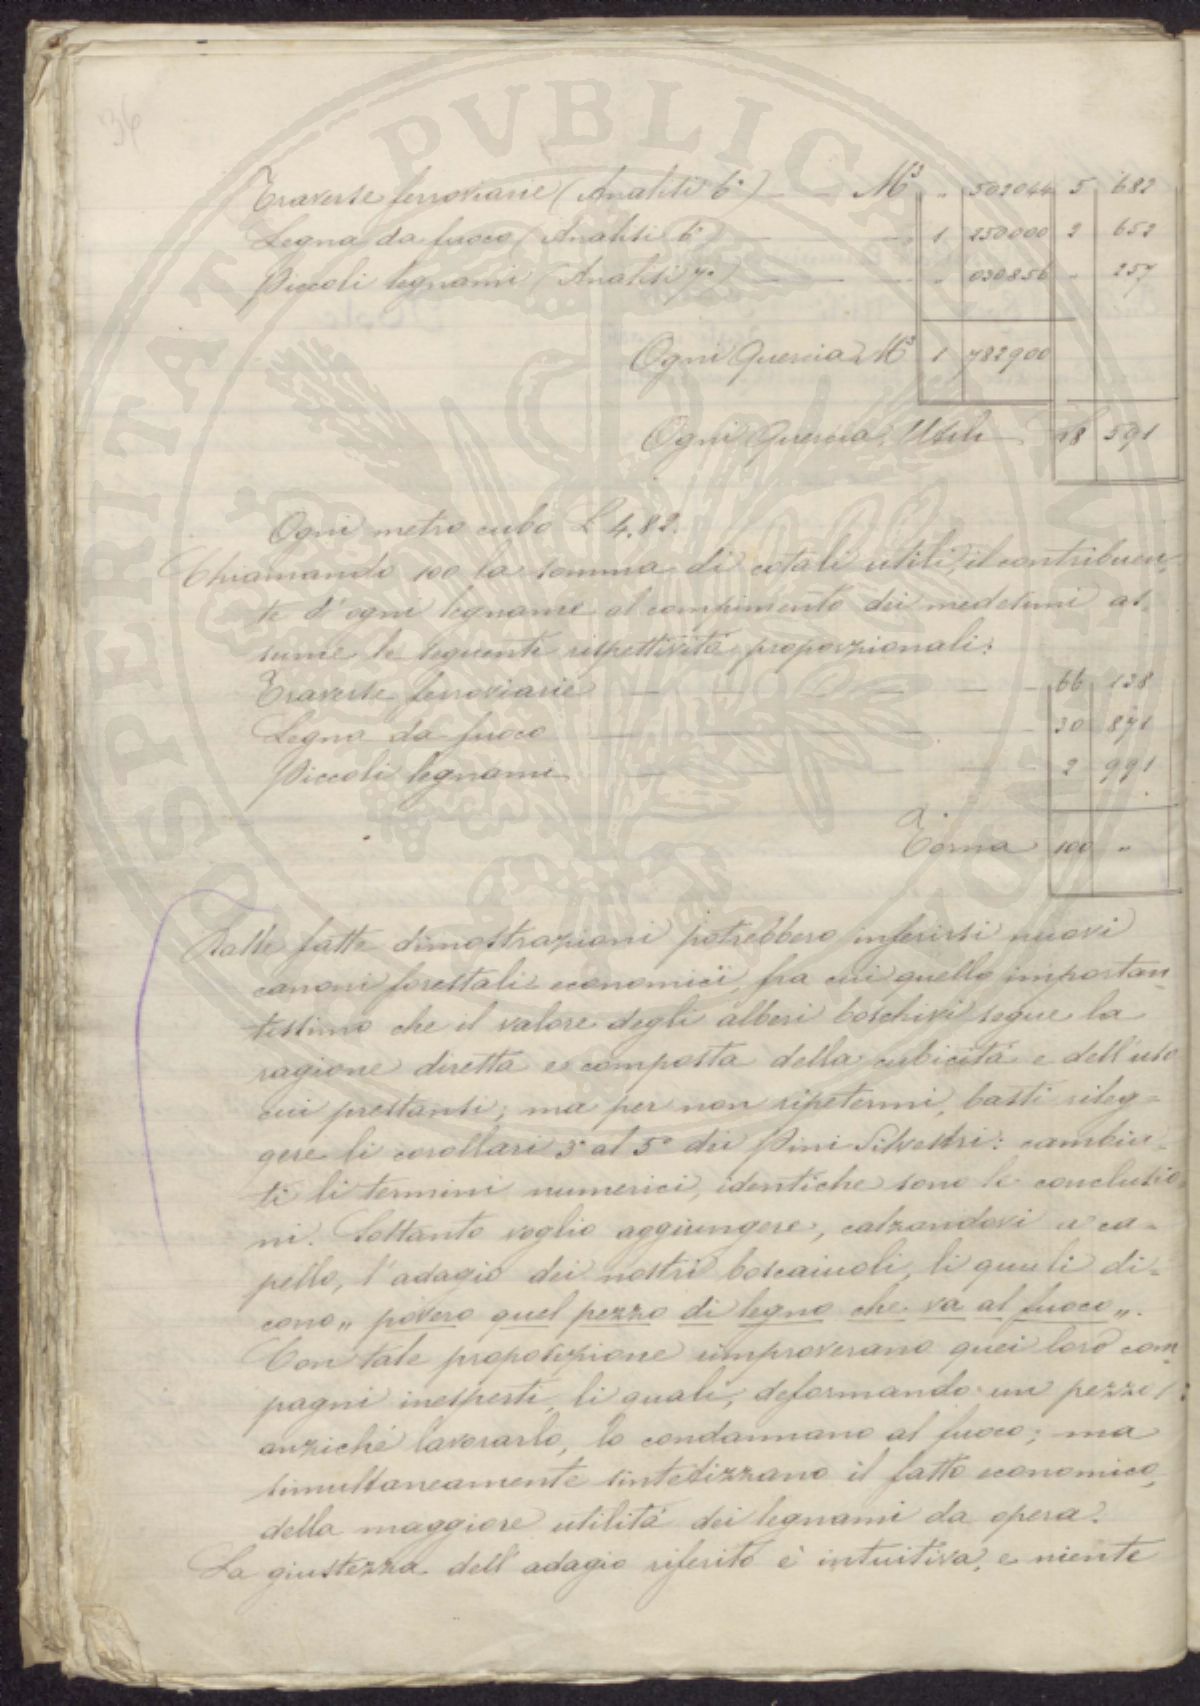 136
Traverse ferroviarie (Analisi 6ª) — M³ „ 502044 5 682
Legna da fuoco (Analisi 6ª) — „ 1 250000 2 652
Piccoli legnami (Analisi 7ª) — „ „ 030856 „ 257
Ogni Quercia M³ 1 782900
Ogni Quercia, Utili 8 591
Ogni metro cubo L 4.82.
Chiamando 100 la somma di cotali utili, il contribuen-
te d'ogni legname al compimento dei medesimi as-
sume le seguenti rispettività proporzionali:
Traverse ferroviarie — 66 138
Legna da fuoco — 30 871
Piccoli legnami — 2 991
Torna 100 „
Dalle fatte dimostrazioni potrebbero inferirsi nuovi
canoni forestali economici, fra cui quello importan-
tissimo che il valore degli alberi boschivi segue la
ragione diretta e composta della cubicità e dell'uso
cui prestansi; ma per non ripetermi, basti rileg-
gere li corollari 3° al 5° dei Pini Silvestri: cambia-
ti li termini numerici, identiche sono le conclusio-
ni. Soltanto voglio aggiungere, calzandovi a ca-
pello, l'adagio dei nostri boscaiuoli, li quali di-
cono „ povero quel pezzo di legno che va al fuoco „.
Con tale proposizione improverano quei loro com-
pagni inesperti, li quali, deformando un pezzo
anziché lavorarlo, lo condannano al fuoco; ma
simultaneamente sintetizzano il fatto economico,
della maggiore utilità dei legnami da opera.
La giustezza dell'adagio riferito è intuitiva, e niente
PROSPERITAT PVBLICAE